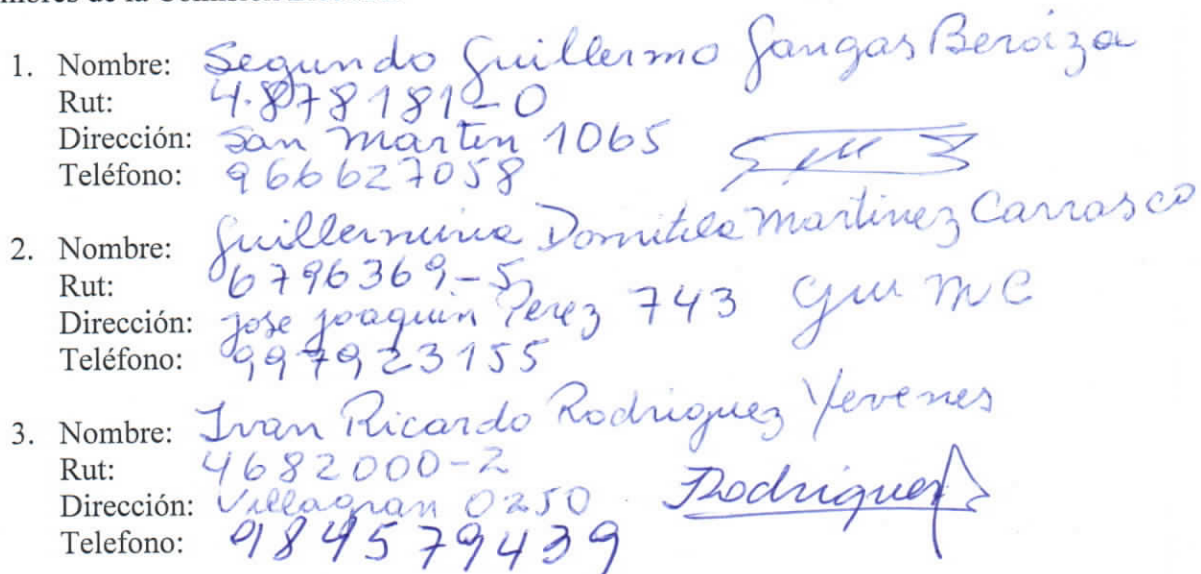 mbres de la Comisión
1. Nombre: Segundo Guillermo Gangas Beroiza
Rut: 4.878181-0
Dirección: San Martin 1065
Teléfono: 966627058
2. Nombre: Guillermina Domitila Martinez Carrasco
Rut: 6796369-5
Dirección: jose joaquin Perez 743 GM MC
Teléfono: 997923155
3. Nombre: Ivan Ricardo Rodriguez Yevenes
Rut: 4682000-2
Dirección: Villagran 0250 Rodriguez
Telefono: 984579439